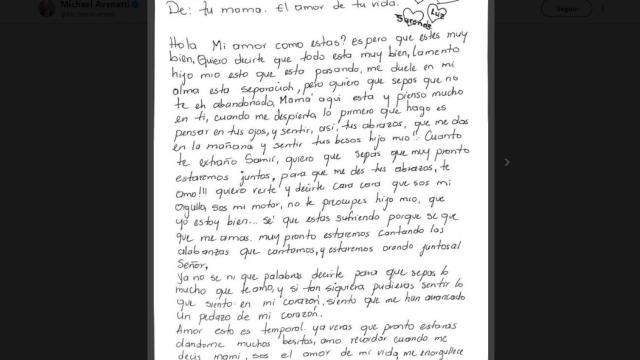 Michael Avenatti
Seguir
De: tu mama. El amor de tu vida.
Luz
Hola Mi amor como estas? espero que estes muy
bien, Quiero decirte que todo esta muy bien, Lamento
hijo mio esto que esta pasando, me duele en mi
alma esta separacion, pero quiero que sepas que no
te eh abandonado, Mamá aqui esta y pienso mucho
en ti, cuando me despierto lo primero que hago es
pensar en tus ojos, y sentir, asi, tus abrazos, que me das
en la mañana y sentir tus besos hijo mio!! Cuanto
te extraño Samir, quiero que sepas que muy pronto
estaremos juntos, para que me des tus abrazos, te
amo!!! quiero verte y decirte cara cara que sos mi
Orgullo, sos mi motor, no te preocupes hijo mio, que
yo estoy bien... se' que estas sufriendo porque se que
que me amas. muy pronto estaremos cantando las
alabanzas que cantamos, y estaremos orando juntos al
Señor,
Ya no se ni que palabras decirte para que sepas lo
mucho que te amo, y si tan siquiera pudieras sentir lo
que siento en mi corazón, siento que me han arrancado
un pedazo de mi corazón.
Amor esto es temporal. ya veras que pronto estaras
dandome muchos besitos, amo recordar cuando me
decis mami, sos el amor de mi vida, me enorgullece